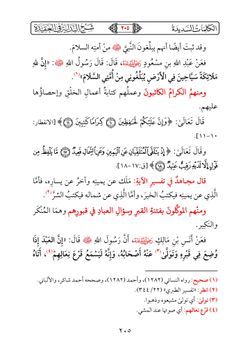 الكلمات السديدة ٢٠٥ شرح البداية في العقيدة
وقد ثبت أيضًا أنهم يبلِّغون النَّبيَّ ﷺ من أمته السلامَ.
فعَنْ عَبدِ اللهِ بنِ مَسْعُودٍ رضي الله عنه، قَالَ: قَالَ رَسُولُ اللهِ ﷺ: «إِنَّ لِلهِ
مَلَائِكَةً سَيَّاحِينَ فِي الأَرْضِ يُبَلِّغُونِي مِنْ أُمَّتِي السَّلَامَ»(١).
ومنهمُ الكرامُ الكاتبونَ وعملُهم كتابةُ أعمالِ الخلقِ وإحصاؤُها
عليهم.
قَالَ تَعَالَىٰ: ﴿وَإِنَّ عَلَيْكُمْ لَحَافِظِينَ ۝ كِرَامًا كَاتِبِينَ ۝﴾ [الانفطار:
١٠-١١].
وقَالَ تَعَالَىٰ: ﴿إِذْ يَتَلَقَّى الْمُتَلَقِّيَانِ عَنِ الْيَمِينِ وَعَنِ الشِّمَالِ قَعِيدٌ ۝ مَا يَلْفِظُ مِن
قَوْلٍ إِلَّا لَدَيْهِ رَقِيبٌ عَتِيدٌ ۝﴾ [ق: ١٧-١٨].
قال مجاهدٌ في تفسيرِ الآيةِ: مَلَكٌ عن يمينِه وآخرُ عن يسارِه، فأمَّا
الَّذِي عن يمينِه فيكتبُ الخيرَ، وأمَّا الَّذِي عن شمالِه فيكتبُ الشرَّ(٢).
ومنهم الموكَّلونَ بفتنةِ القبرِ وسؤالِ العبادِ في قبورِهم وهمَا المُنْكَر
والنَّكِير.
فعَنْ أَنَسِ بنِ مَالِكٍ رضي الله عنه، أَنَّ رَسُولَ اللهِ ﷺ، قَالَ: «إِنَّ العَبْدَ إِذَا
وُضِعَ فِي قَبْرِهِ وَتَوَلَّىٰ(٣) عَنْهُ أَصْحَابُهُ، وَإِنَّهُ لَيَسْمَعُ قَرْعَ نِعَالِهِمْ(٤)، أَتَاهُ
(١) صحيح: رواه النسائي (١٢٨٢)، وأحمد (١٢٨٢)، وصححه أحمد شاكر، والألباني.
(٢) انظر: «تفسير الطبري» (٢٢/ ٣٤٤).
(٣) تولىٰ: أي تولىٰ مشيعوه وذهبوا.
(٤) قرْع نعالهم: أي صوتها عند المشي.
٢٠٥